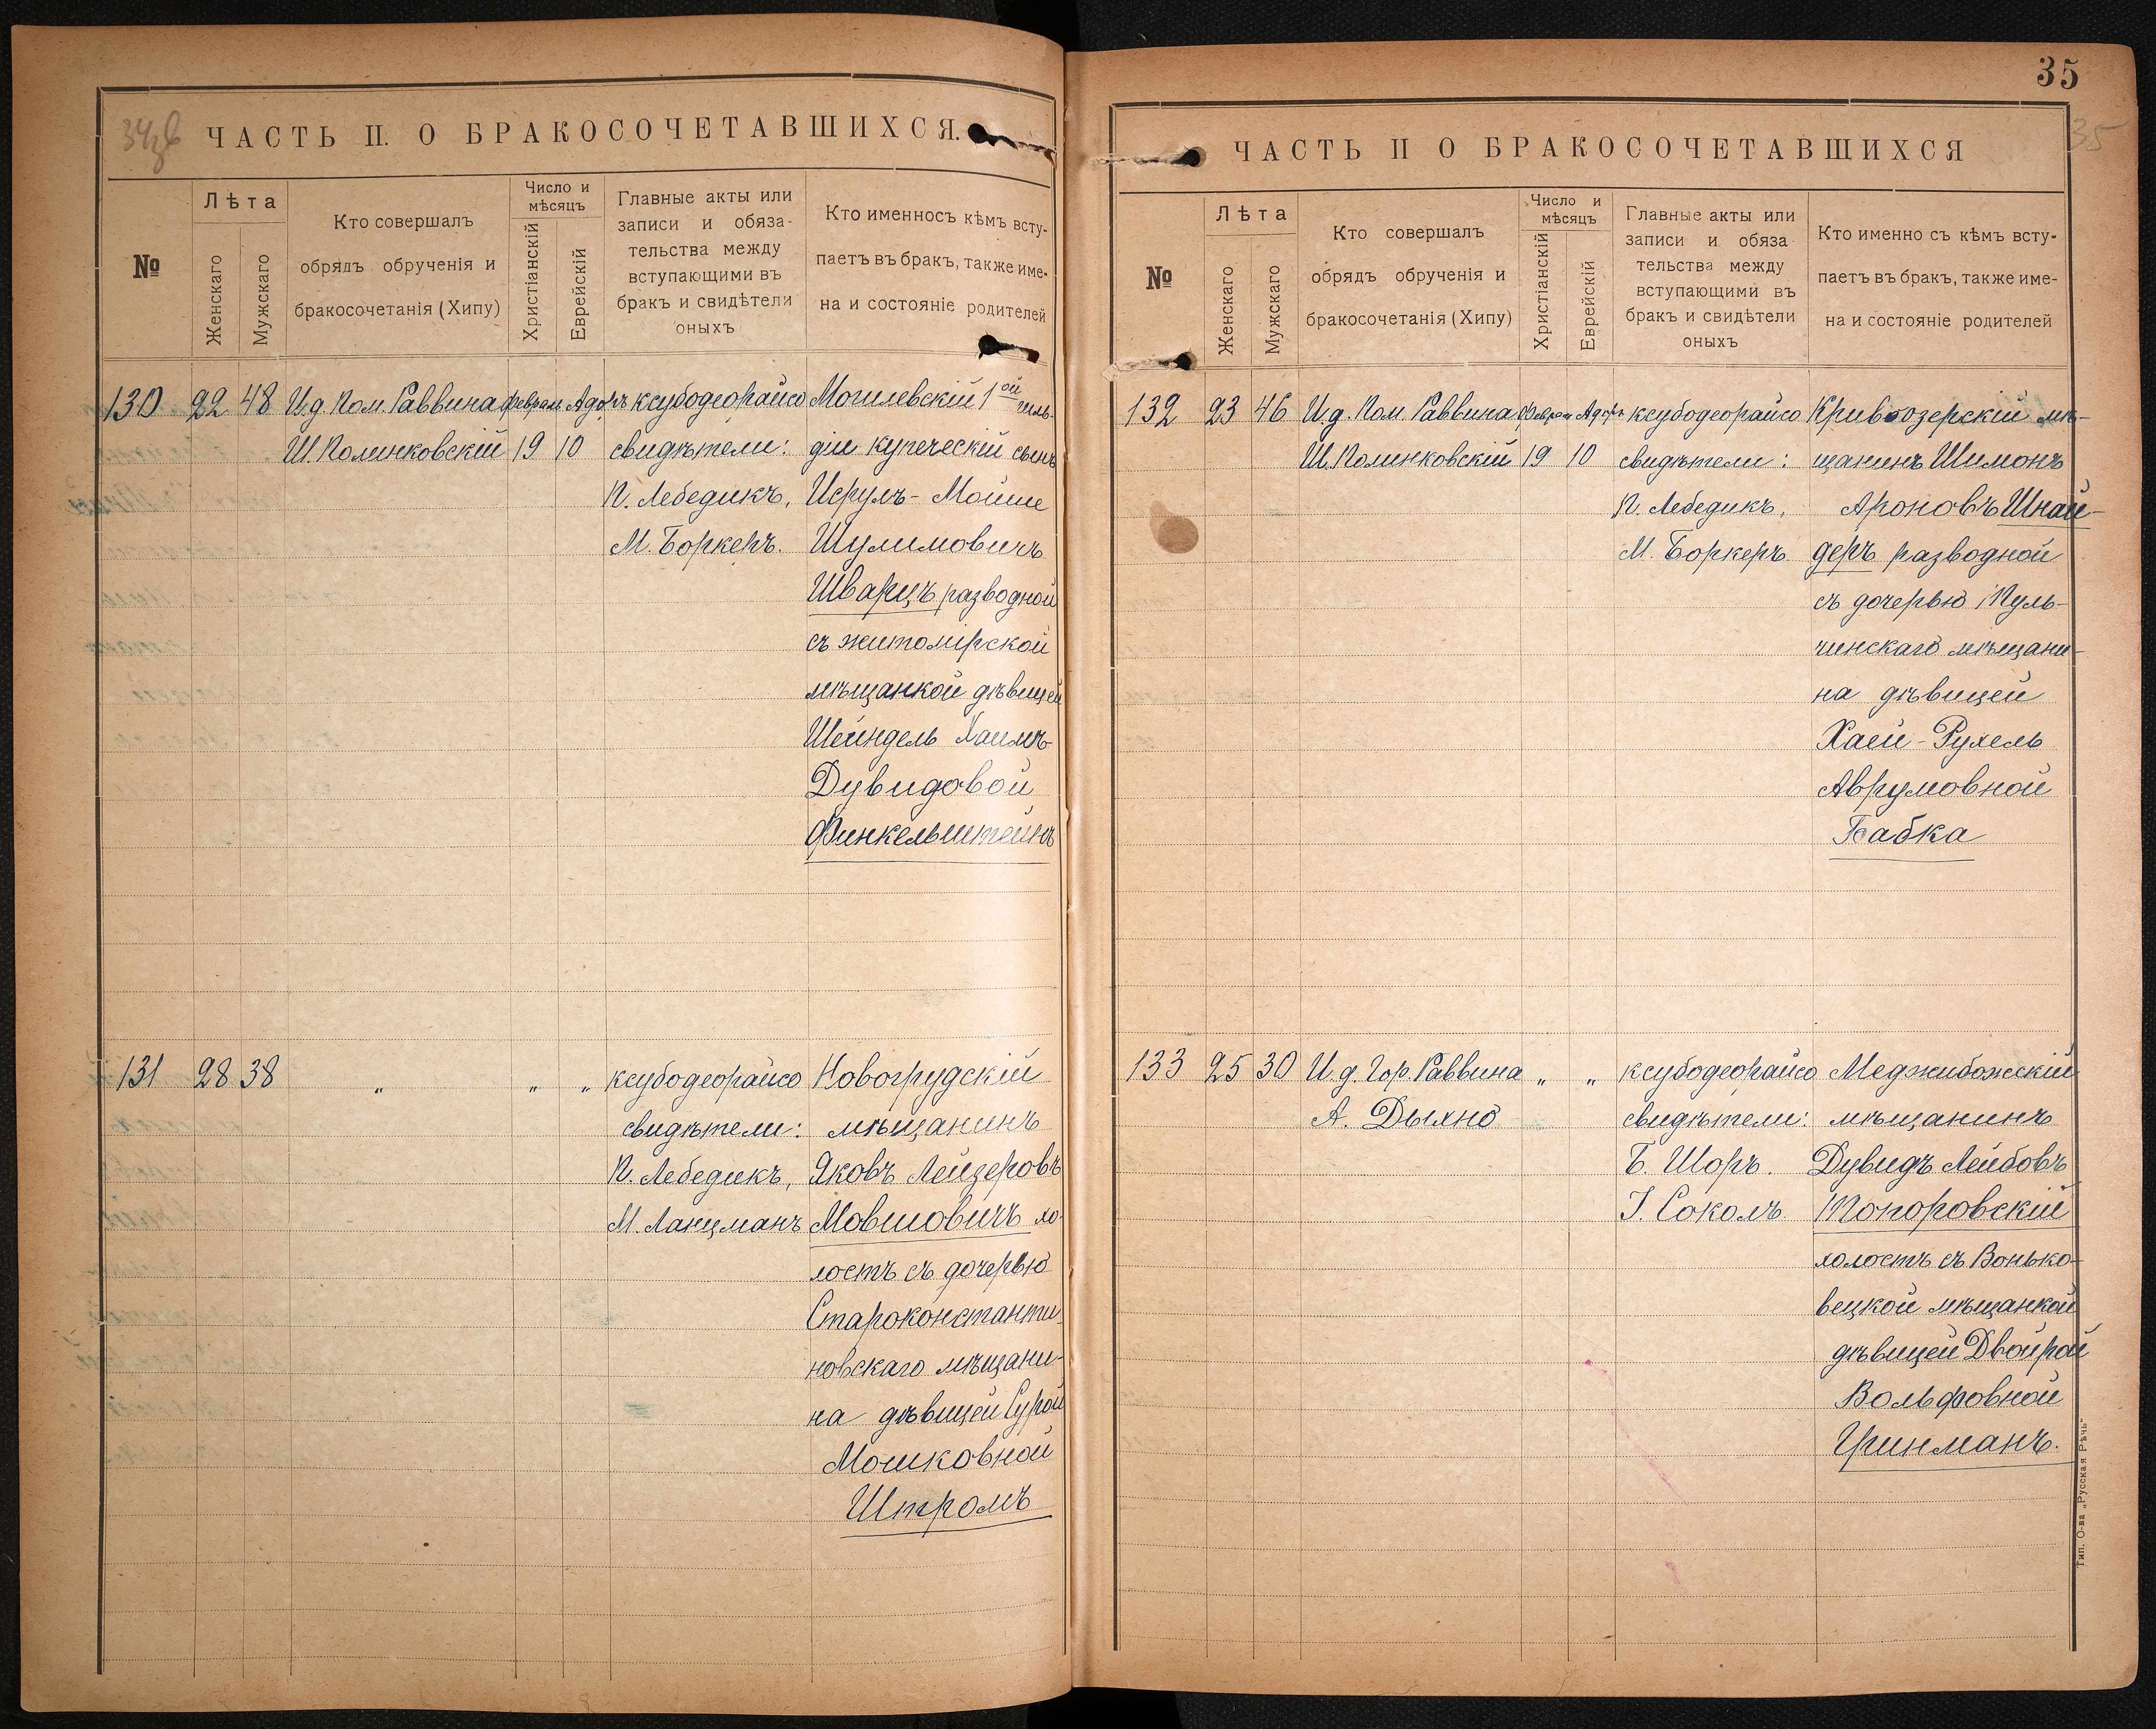 34 об
ЧАСТЬ II. О БРАКОСОЧЕТАВШИХСЯ.
№
Лѣта
Женскаго
Мужскаго
Кто совершалъ
обрядъ обрученія и
бракосочетанія (Хипу)
Число и
мѣсяцъ
Христіанскій
Еврейскій
Главные акты или
записи и обяза-
тельства между
вступающими въ
бракъ и свидѣтели
оныхъ
Кто именносъ кѣмъ всту-
паетъ въ бракъ, также име-
на и состояніе родителей
130 22 48 И.д. Пом. Раввина февраль Адаръ ксубодеорайсо Могилевскій 1ой гиль-
Ш. Полинковскій 19 10 свидѣтели: діи купеческій сынъ
П. Лебедикъ, Исрулъ-Мойше
М. Боркеръ. Шулимовичъ
Шварцъ разводной
съ житомірской
мѣщанкой дѣвицей
Шейндель Хаимъ-
Дувидовой
Финкельштейнъ
131 28 38 „ „ „ ксубодеорайсо Новогрудскій
свидѣтели: мѣщанинъ
П. Лебедикъ, Яковъ Лейзеровъ
М. Ланцманъ Мовшовичъ хо-
лостъ съ дочерью
Староконстанти-
новскаго мѣщани-
на дѣвицей Сурой
Мошковной
Штромъ
35
35
ЧАСТЬ II О БРАКОСОЧЕТАВШИХСЯ
№
Лѣта
Женскаго
Мужскаго
Кто совершалъ
обрядъ обрученія и
бракосочетанія (Хипу)
Число и
мѣсяцъ
Христіанскій
Еврейскій
Главные акты или
записи и обяза
тельства между
вступающими въ
бракъ и свидѣтели
оныхъ
Кто именно съ кѣмъ всту-
паетъ въ бракъ, также име-
на и состояніе родителей
132 23 46 И.д. Пом. Раввина Феврал Адаръ ксубодеорайсо Кривоозерскій мѣ-
Ш. Полинковскій 19 10 свидѣтели: щанинъ Шимонъ
П. Лебедикъ, Ароновъ Шнай-
М. Боркеръ. деръ разводной
съ дочерью Туль-
чинскаго мѣщани-
на дѣвицей
Хаей-Рухель
Аврумовной
Бабка
133 25 30 И.д. Гор. Раввина „ „ ксубодеорайсо Меджибожскій
А. Дыхно свидѣтели: мѣщанинъ
Б. Шоръ. Дувидъ Лейбовъ
І. Соколъ. Топоровскій
холостъ съ Вонько-
вецкой мѣщанкой
дѣвицей Двойрой
Вольфовной
Гринманъ.
Тип. О-ва „Русская Рѣчь"